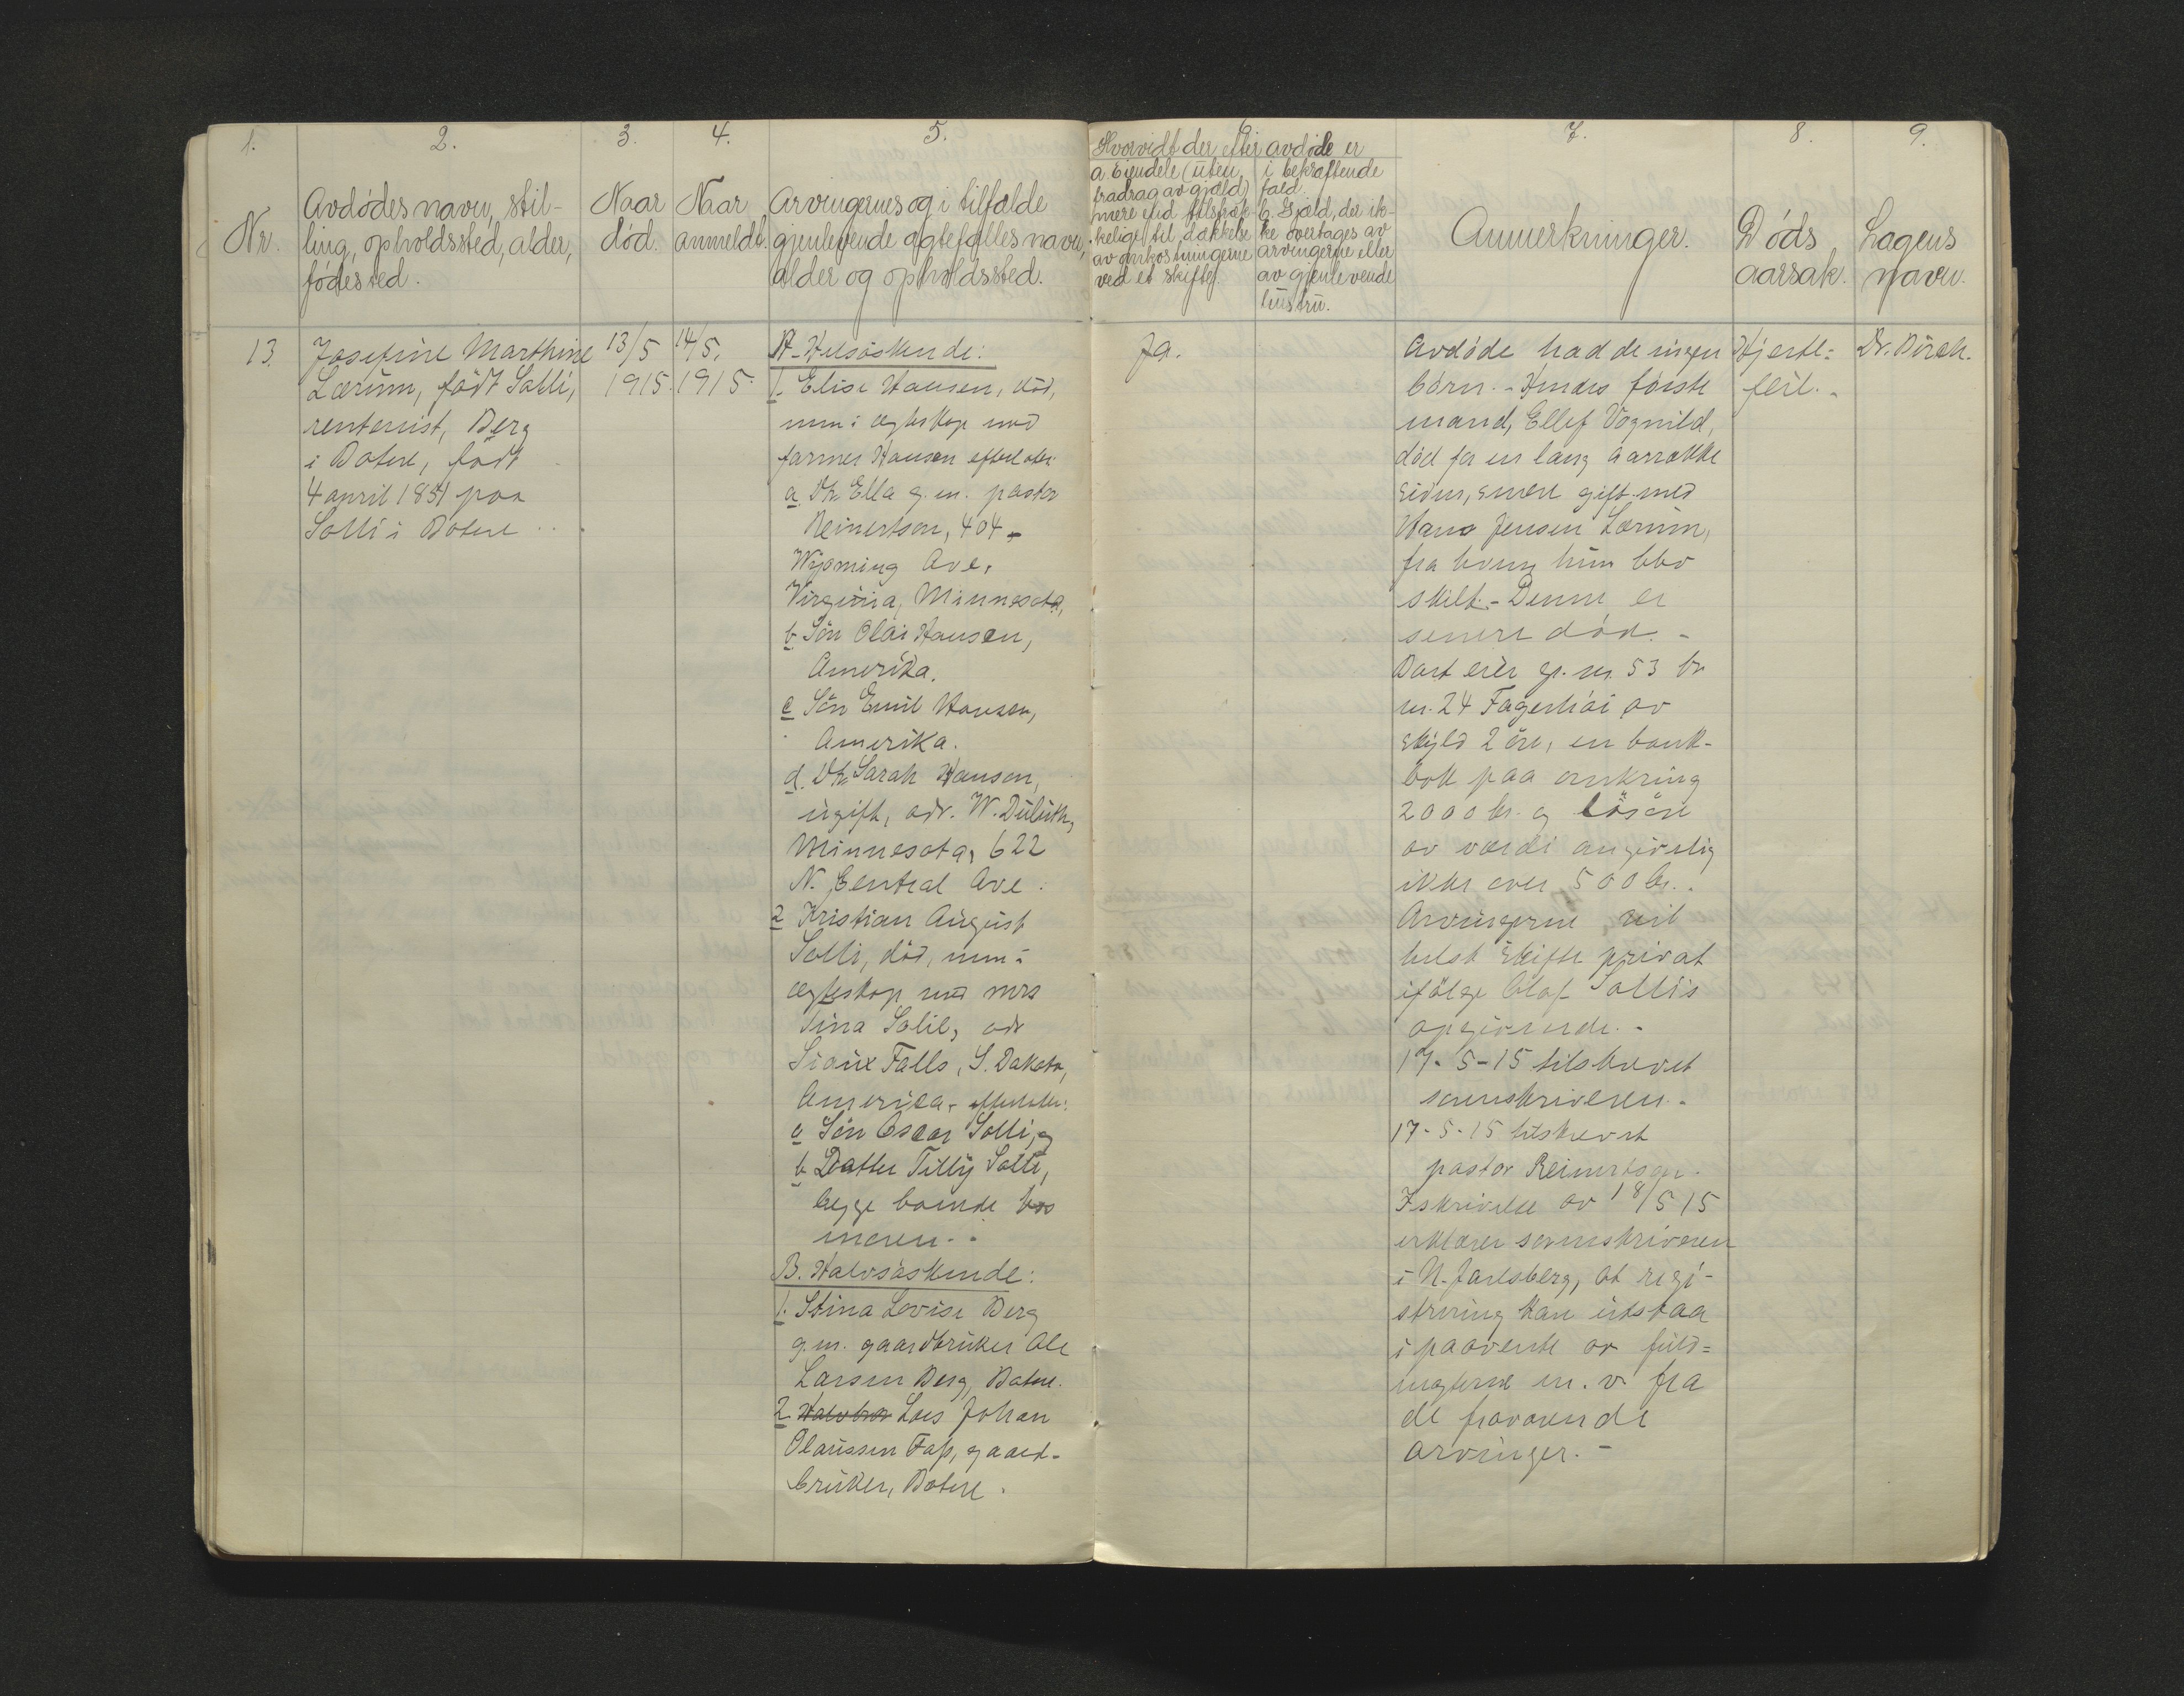 1.
2.
3.
4.
5.
6.
7.
8.
9.
Nr.
Avdødes navn, stil-
ling, opholdssted, alder,
fødested.
Naar
død.
Naar
anmeldt.
Arvingernes og i tilfælde
gjenlevende ægtefælles navn,
alder og opholdssted.
Hvorvidt der efter avdøde er
a Eiendele (uten
fradrag av gjæld)
mere end tilstræk-
kelige til dækkelse
av omkostningerne
ved et skifte.
i bekræftende
fald.
b. Gjæld, der ik-
ke overtages av
arvingerne eller
av gjenlevende
hustru.
Anmerkninger.
Døds
aarsak.
Lægens
navn.
13.
Josefine Marthine
Lærum, født Solli,
rentenist, Berg
i Botne, født
4 april 1851 paa
Solli i Botne
13/5
1915.
14/5.
1915.
A. Helsøskende:
1. Elise Hansen, død,
men i ægteskap med
farmer Hansen efterlatt:
a. Dtr. Ella g. m. pastor
Reinertson, 404 -
Wyoming Ave.
Virginia, Minnesota,
b. Søn Olai Hansen,
Amerika.
c Søn Emil Hansen,
Amerika.
d. Dtr. Sarah Hansen,
ugift, adr. W. Duluth,
Minnesota, 622
N. Central Ave.
2 Kristian August
Solli, død, men i
ægteskap med mrs
Tina Solli, adr
Sioux Falls, S. Dakota,
America - efterlatt:
a Søn Oscar Solli, og
b Datter Tilly Solli,
begge boende hos
moren. -
B. Halvsøskende:
1. Stina Lovise Berg
g. m. gaardbruker Ole
Larsen Berg, Botne.
2. Halvbror Lars Johan
Olaussen Fap, gaard-
bruker, Botne.
Ja.
Avdøde hadde ingen
børn. - Hendes første
mand, Ellef Vognild,
død for en lang aarrække
siden, senere gift med
Hans Jensen Lærum,
fra hvem hun blev
skilt. - Denne er
senere død. -
Boet eier gr. nr. 53 br
nr. 24 Fagerhøi av
skyld 2 øre, en bank-
bok paa omkring
2000 kr. og løsøre
av værdi angivelig
ikke over 500 kr. -
Arvingerne vil
helst skifte privat
ifølge Olaf Sollis
opgivende. -
17-5-15 tilskrevet
sorenskriveren. -
17-5-15 tilskrevet
pastor Reinertson.
I skrivelse av 18/5 15
erklærer sorenskriveren
i N. Jarlsberg, at regi-
strering kan utstaa
i paavente av fuld=
magterne m. v. fra
de fraværende
arvinger. -
Hjerte=
feil. -
Dr. Birch.